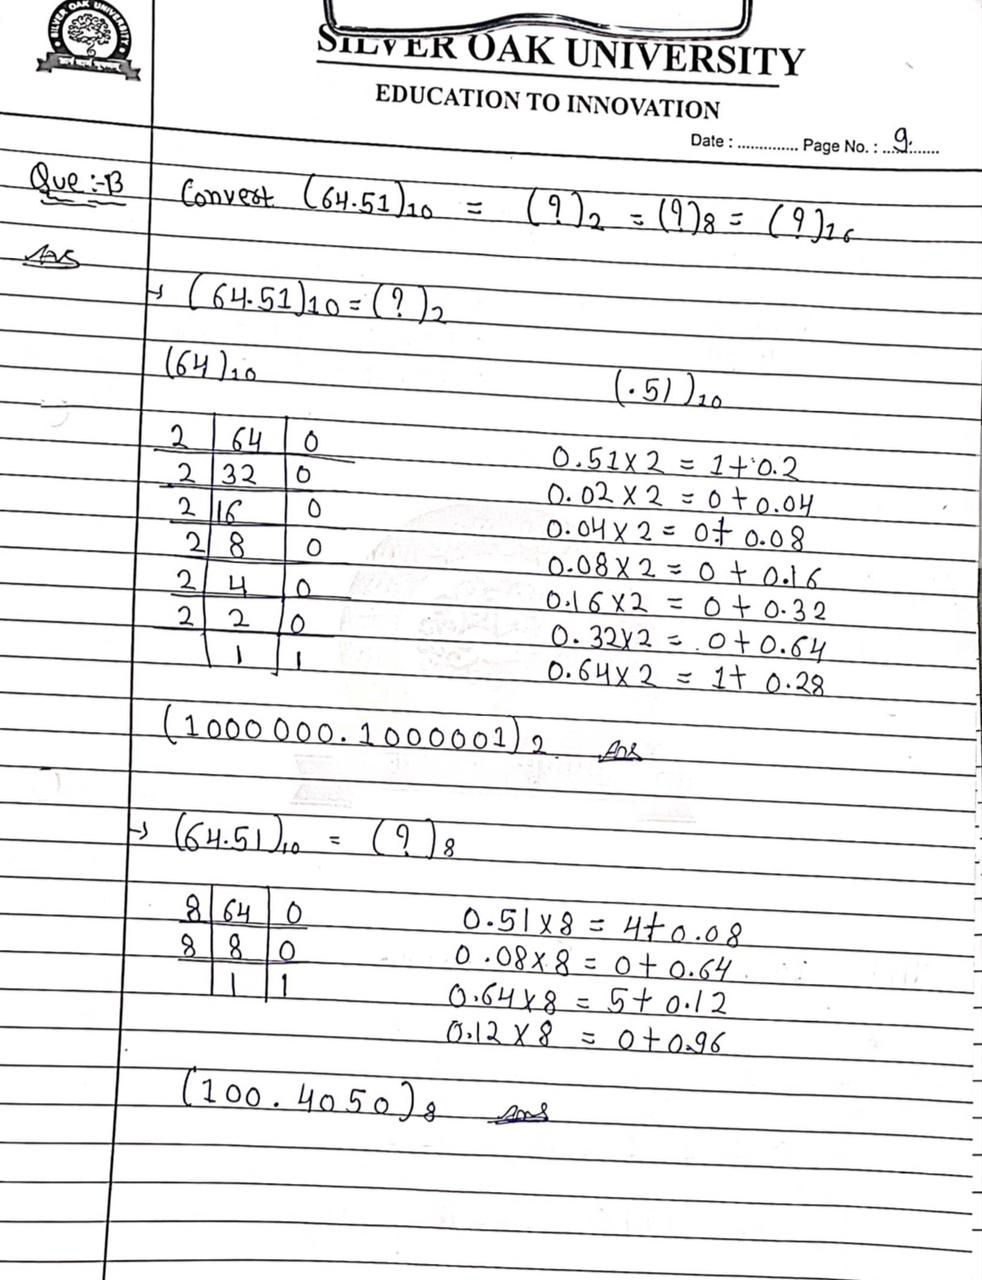 SILVER OAK UNIVERSITY
SILVER OAK UNIVERSITY
EDUCATION TO INNOVATION
Date : .............. Page No. : ...9.......
Que :-B Convert (64.51)10 = (?)2 = (?)8 = (?)16
Ans
→ (64.51)10 = (?)2
(64)10 (.51)10
2 64 0
2 32 0
2 16 0
2 8 0
2 4 0
2 2 0
1 1
0.51x2 = 1+0.2
0.02x2 = 0+0.04
0.04x2 = 0+0.08
0.08x2 = 0+0.16
0.16x2 = 0+0.32
0.32x2 = 0+0.64
0.64x2 = 1+0.28
(1000000.1000001)2 Ans
→ (64.51)10 = (?)8
8 64 0
8 8 0
1 1
0.51x8 = 4+0.08
0.08x8 = 0+0.64
0.64x8 = 5+0.12
0.12x8 = 0+0.96
(100.4050)8 Ans